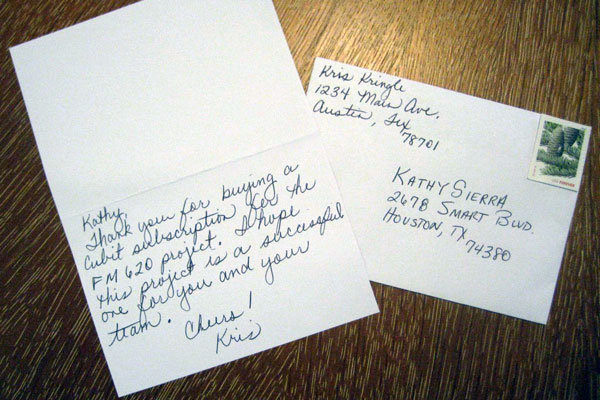 Kathy,
Thank you for buying a
Cubit subscription for the
FM 620 project. I hope
this project is a successful
one for you and your
team.
Cheers!
Kris
Kris Kringle
1234 Main Ave.
Austin, Tex
78701
KATHY SIERRA
2678 SMART BLVD.
HOUSTON, TX
74380
FOREVER